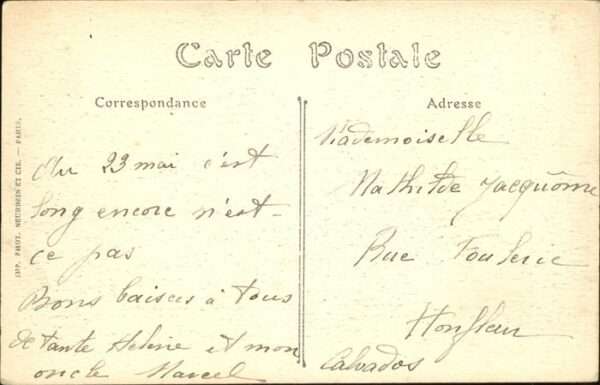 Carte Postale
Correspondance
Adresse
IMP. PHOT. NEURDEIN ET CIE. — PARIS.
Au 23 mai c'est
long encore n'est-
ce pas
Bons baisers à tous
de tante Helene et mon
oncle Marcel
Mademoiselle
Mathilde Jacquôme
Rue Foulerie
Honfleur
Calvados